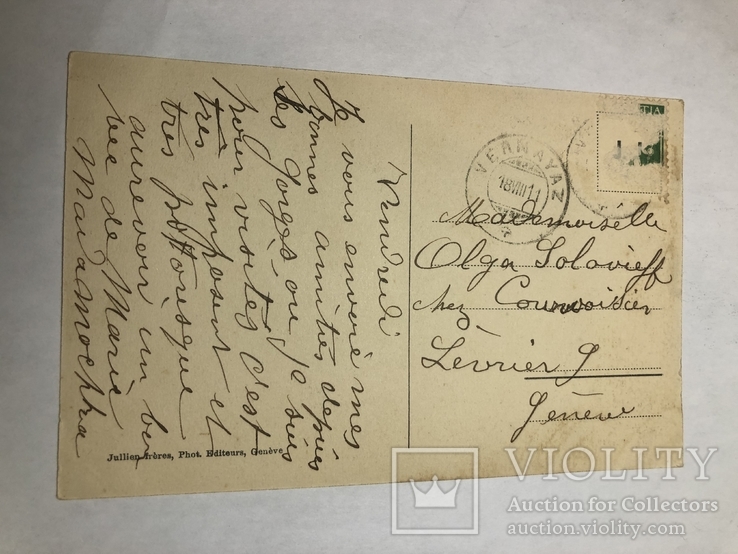 Vendredi
Je vous envoie mes
bonnes amitiés depuis
les Gorges ou je suis
pour visites c'est
très imposent et
très pittoresque
aurevoir un bec
bec de Marie
VERNAYAZ
18 VIII 11
Mademoiselle
Olga Solovieff
chez Courvoisier
Lévrier 9
Genève
Jullien frères, Phot. Editeurs, Genève
VIOLITY
Auction for Collectors
auction.violity.com